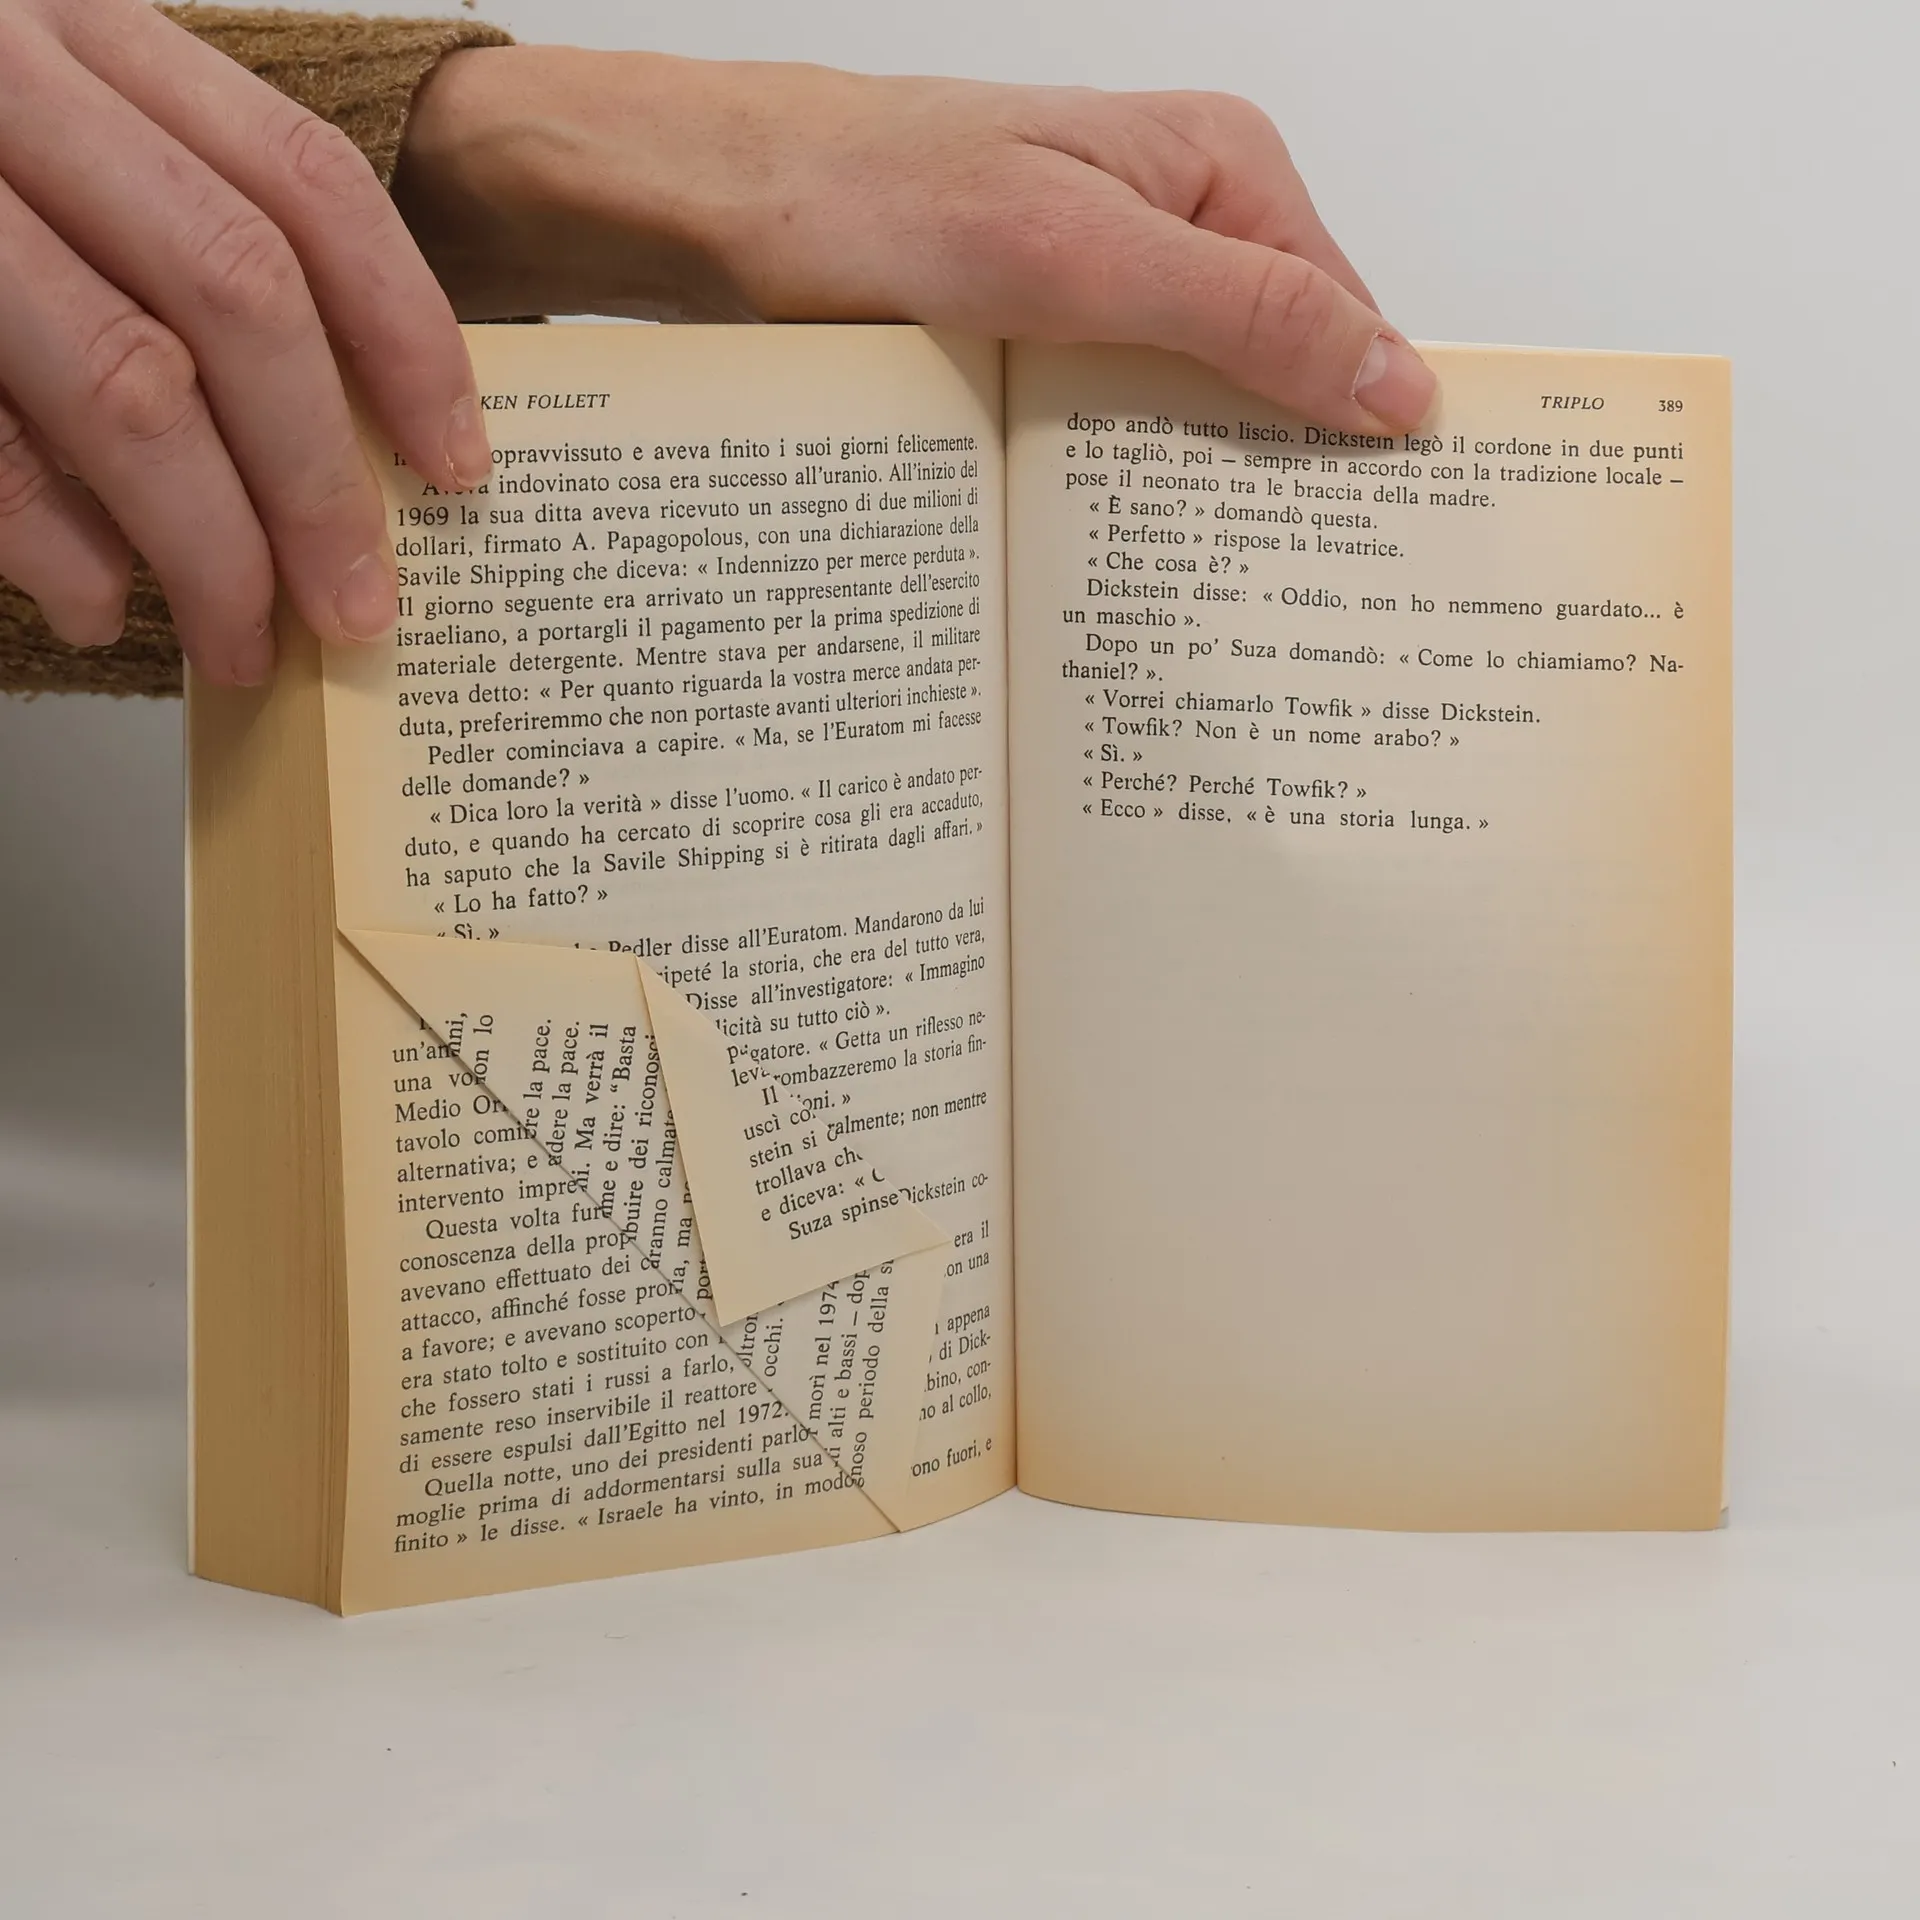 KEN FOLLETT
opravvissuto e aveva finito i suoi giorni felicemente.
indovinato cosa era successo all'uranio. All'inizio del
1969 la sua ditta aveva ricevuto un assegno di due milioni di
dollari, firmato A. Papagopolous, con una dichiarazione della
Savile Shipping che diceva: « Indennizzo per merce perduta ».
Il giorno seguente era arrivato un rappresentante dell'esercito
israeliano, a portargli il pagamento per la prima spedizione di
materiale detergente. Mentre stava per andarsene, il militare
aveva detto: « Per quanto riguarda la vostra merce andata per-
duta, preferiremmo che non portaste avanti ulteriori inchieste ».
Pedler cominciava a capire. « Ma, se l'Euratom mi facesse
delle domande? »
« Dica loro la verità » disse l'uomo. « Il carico è andato per-
duto, e quando ha cercato di scoprire cosa gli era accaduto,
ha saputo che la Savile Shipping si è ritirata dagli affari. »
« Lo ha fatto? »
« Sì. »
Pedler disse all'Euratom. Mandarono da lui
ripeté la storia, che era del tutto vera,
Disse all'investigatore: « Immagino
licità su tutto ciò ».
gatore. « Getta un riflesso ne-
rombazzeremo la storia fin-
oni. »
almente; non mentre
Dickstein co-
era il
on una
appena
di Dick-
bino, con-
no al collo,
ono fuori, e
Il
uscì co
stein si
trollava ch
e diceva: «
Suza spinse
nni,
non lo
re la pace.
adere la pace.
i. Ma verrà il
me e dire: "Basta
buire dei riconosci
aranno calmat
ia, ma
port
oltron
occhi.
morì nel 1974
ti alti e bassi — dop
gnoso periodo della s
un'a
una vo
Medio Or
tavolo comi
alternativa; e
intervento impre
Questa volta fur
conoscenza della prop
avevano effettuato dei c
attacco, affinché fosse pro
a favore; e avevano scoperto
era stato tolto e sostituito con
che fossero stati i russi a farlo,
samente reso inservibile il reattore
di essere espulsi dall'Egitto nel 1972.
Quella notte, uno dei presidenti parlò
moglie prima di addormentarsi sulla sua
finito » le disse. « Israele ha vinto, in modo
TRIPLO 389
dopo andò tutto liscio. Dickstein legò il cordone in due punti
e lo tagliò, poi — sempre in accordo con la tradizione locale —
pose il neonato tra le braccia della madre.
« È sano? » domandò questa.
« Perfetto » rispose la levatrice.
« Che cosa è? »
Dickstein disse: « Oddio, non ho nemmeno guardato... è
un maschio ».
Dopo un po' Suza domandò: « Come lo chiamiamo? Na-
thaniel? ».
« Vorrei chiamarlo Towfik » disse Dickstein.
« Towfik? Non è un nome arabo? »
« Sì. »
« Perché? Perché Towfik? »
« Ecco » disse, « è una storia lunga. »